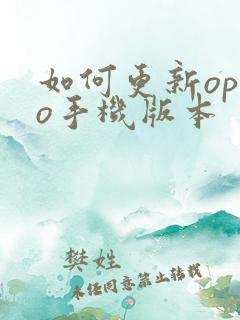 如何更新op
o手機版本
樊姓
未经同意禁止转载